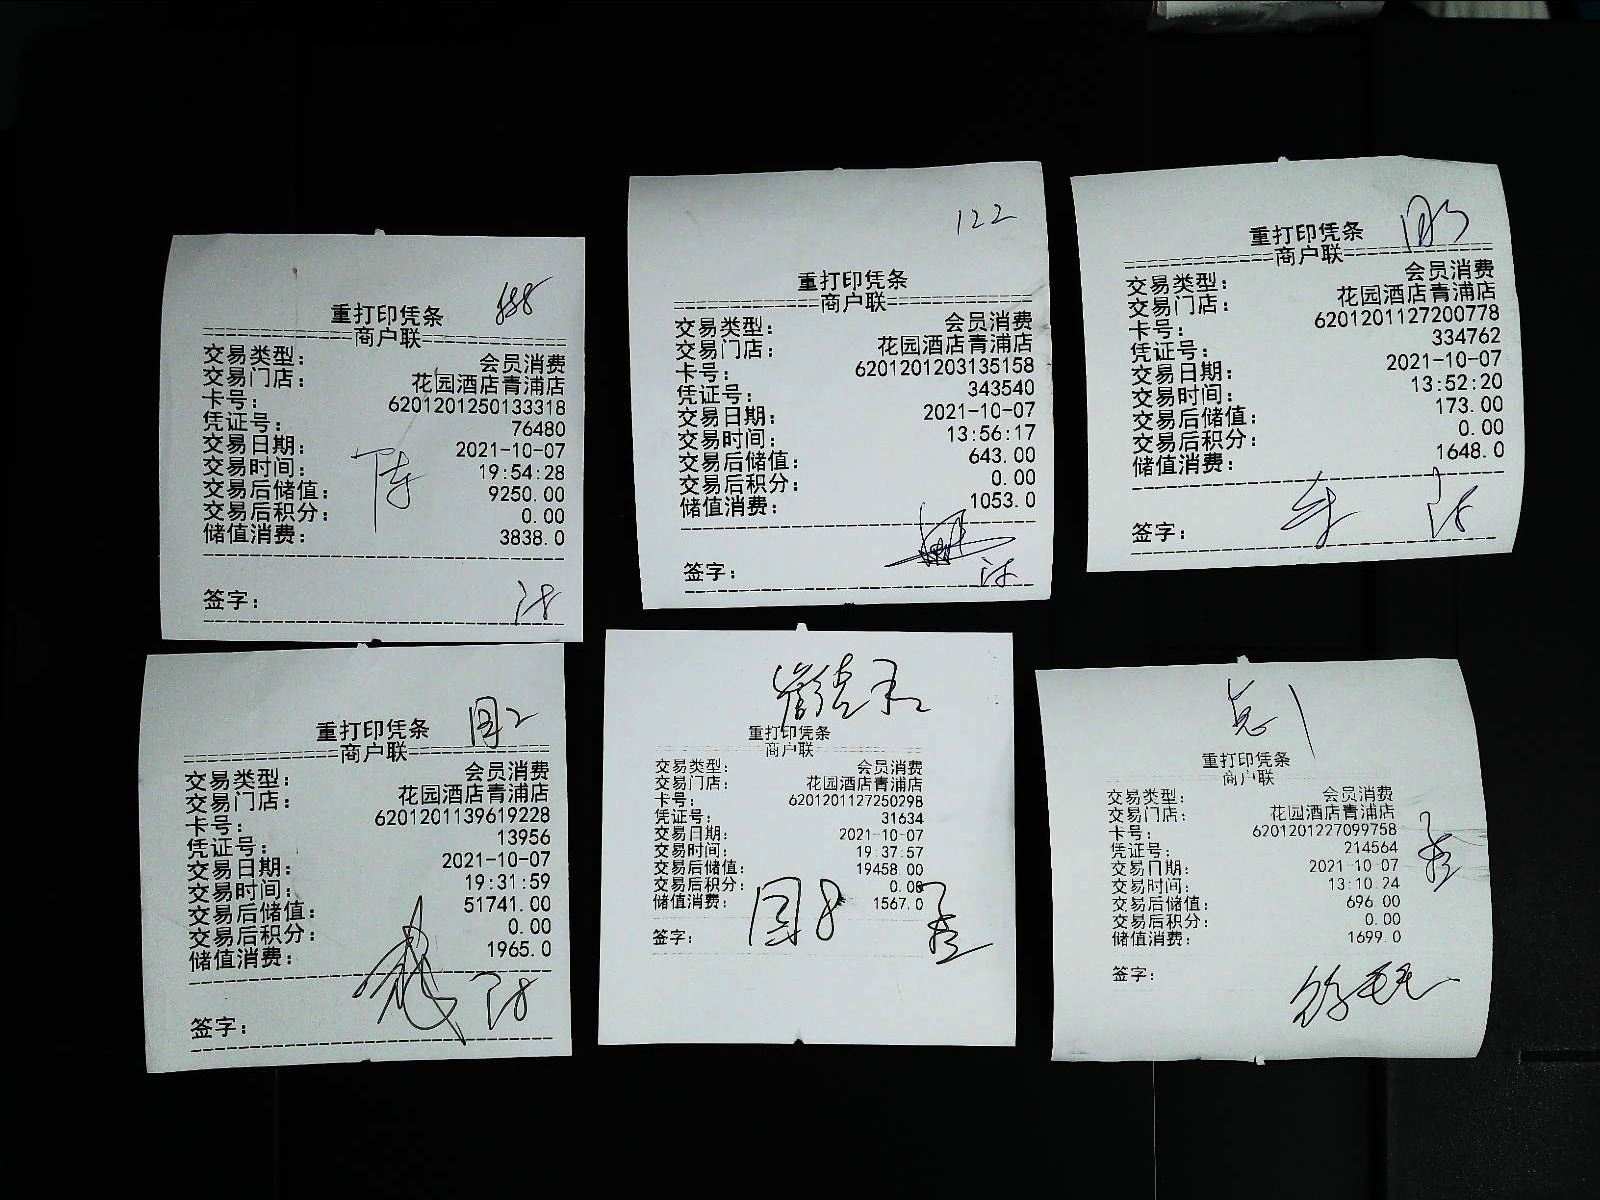 888
重打印凭条
商户联
交易类型： 会员消费
交易门店： 花园酒店青浦店
卡号： 6201201250133318
凭证号： 76480
交易日期： 2021-10-07
交易时间： 19:54:28
交易后储值： 9250.00
交易后积分： 0.00
储值消费： 3838.0
陈
签字：
122
重打印凭条
商户联
交易类型： 会员消费
交易门店： 花园酒店青浦店
卡号： 6201201203135158
凭证号： 343540
交易日期： 2021-10-07
交易时间： 13:56:17
交易后储值： 643.00
交易后积分： 0.00
储值消费： 1053.0
签字：
重打印凭条
商户联
交易类型： 会员消费
交易门店： 花园酒店青浦店
卡号： 6201201127200778
凭证号： 334762
交易日期： 2021-10-07
交易时间： 13:52:20
交易后储值： 173.00
交易后积分： 0.00
储值消费： 1648.0
签字：
重打印凭条
商户联
交易类型： 会员消费
交易门店： 花园酒店青浦店
卡号： 6201201139619228
凭证号： 13956
交易日期： 2021-10-07
交易时间： 19:31:59
交易后储值： 51741.00
交易后积分： 0.00
储值消费： 1965.0
签字：
重打印凭条
商户联
交易类型： 会员消费
交易门店： 花园酒店青浦店
卡号： 6201201127250298
凭证号： 31634
交易日期： 2021-10-07
交易时间： 19:37:57
交易后储值： 19458.00
交易后积分： 0.00
储值消费： 1567.0
签字：
重打印凭条
商户联
交易类型： 会员消费
交易门店： 花园酒店青浦店
卡号： 6201201227099758
凭证号： 214564
交易日期： 2021-10-07
交易时间： 13:10:24
交易后储值： 696.00
交易后积分： 0.00
储值消费： 1699.0
签字：